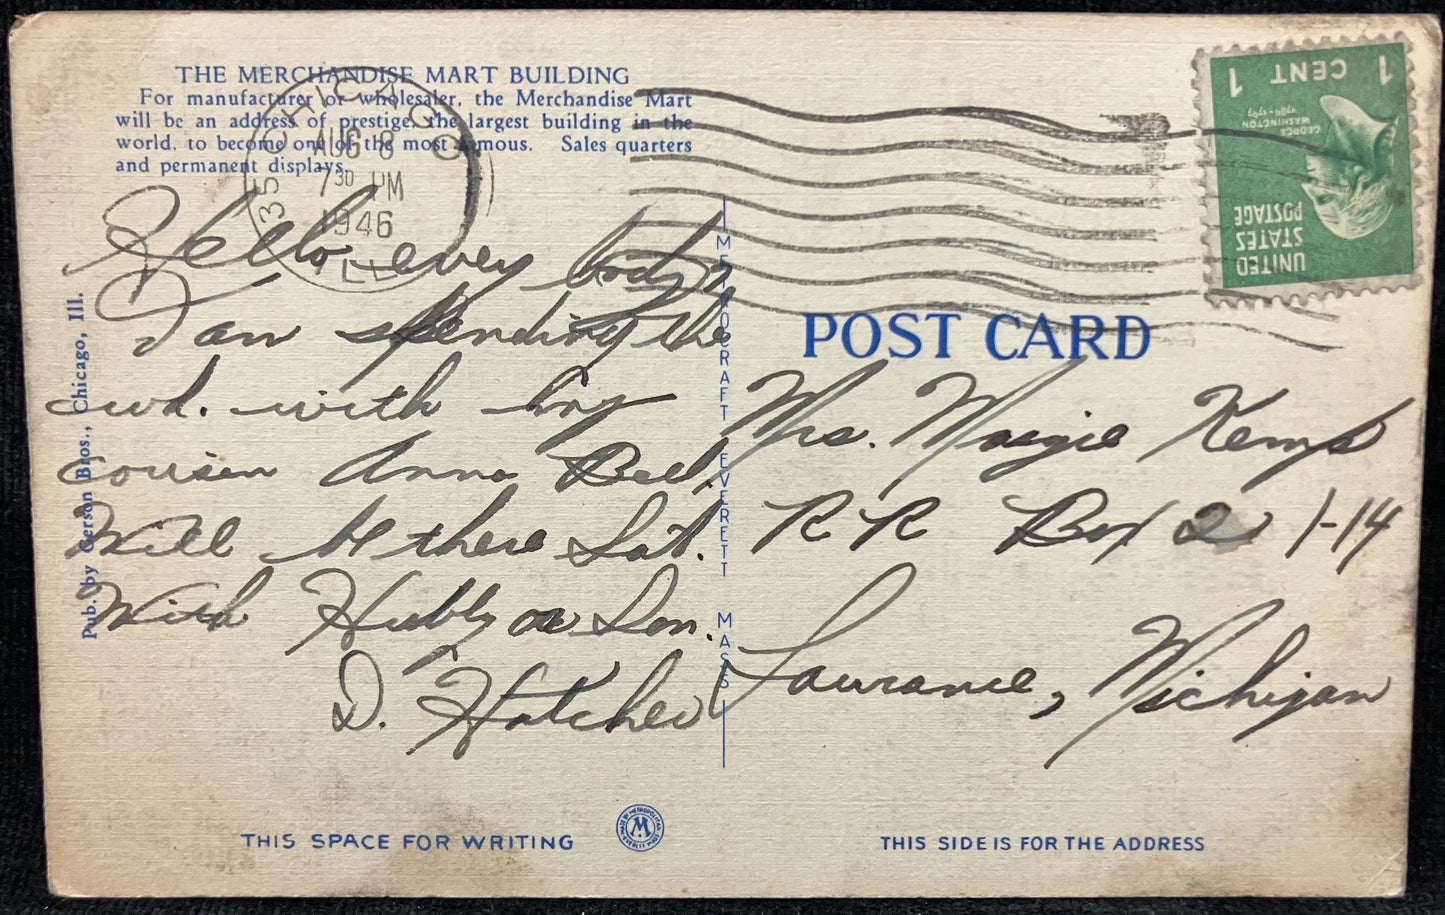 THE MERCHANDISE MART BUILDING
For manufacturer or wholesaler, the Merchandise Mart
will be an address of prestige, the largest building in the
world, to become one of the most famous. Sales quarters
and permanent displays.
CHICAGO
35
ILL
AUG 8
7 30 PM
1946
UNITED
STATES
POSTAGE
GEORGE
WASHINGTON
1789-1797
1 CENT 1
Hello, every body,
I am spending the
wd. with my
cousin Anna Bell,
Will be there Sat.
With Hubby or Son.
D. Hatcher
Pub. by Gerson Bros., Chicago, Ill.
METROCRAFT EVERETT MASS
POST CARD
Mrs. Margie Kemp
RR Box 2 1-14
Lawrance, Michigan
THIS SPACE FOR WRITING
MADE BY METROPOLITAN
M
EVERETT MASS
THIS SIDE IS FOR THE ADDRESS